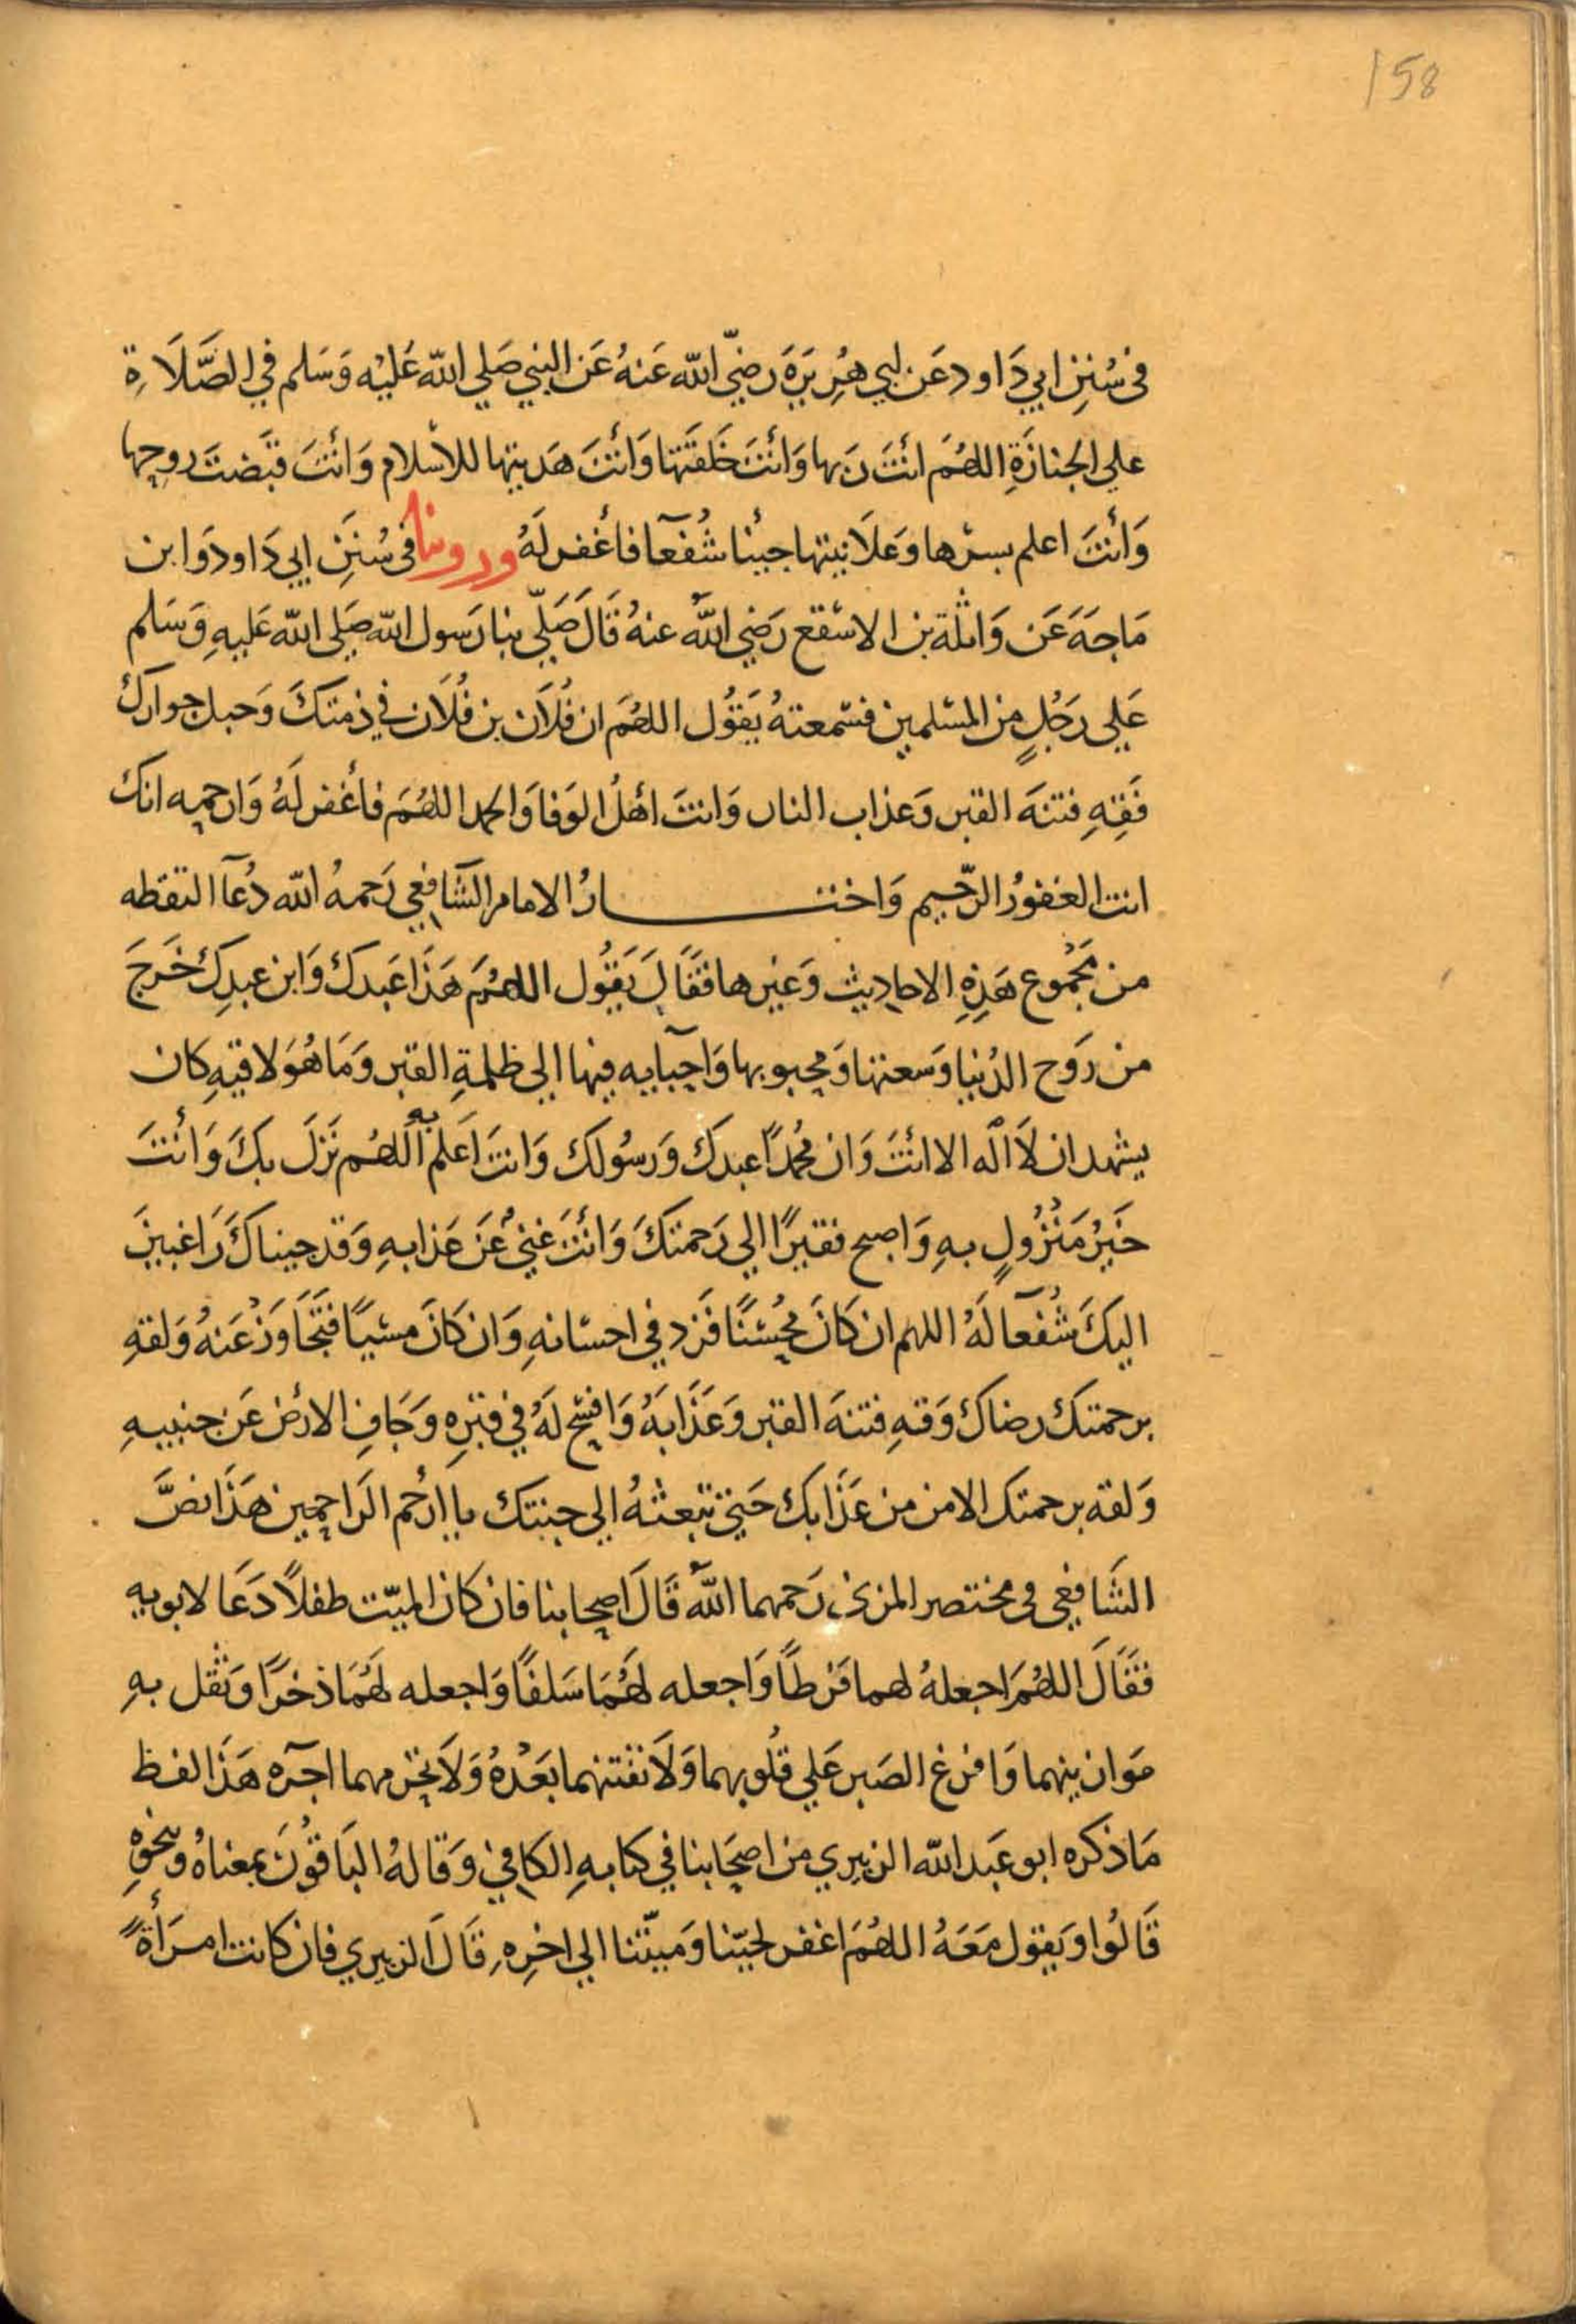 158
في سُنَنِ ابي دَاود عَن ابي هُرِيَرَةَ رَضيّ الله عَنهُ عَن النبي صَلي الله عَليْه وَسَلم في الصَّلَاةِ
علي الجنازَةِ اللهُمَ انْتَ رَبها وَانْتَ خَلَقتَها وَانْتَ هَديتها للاسْلام وَانْتَ قَبَضتَ روحها
وَانْتَ اعلم بسرها وَعَلَانيتها جيْنا شُفعآ فاغْفر لَهُ وروينا في سُنَنِ ابي دَاود وَابن
مَاجَهَ عَن وَاثلة بن الاسْقع رَضي اللهُ عنهُ قَالَ صَلّي بنا رَسول الله صَلي الله عَليهِ وَسَلم
عَلي رَجُلٍ مِن المسْلمين فسْمعتهُ يَقوُل اللهُمَ ان فُلَان بن فُلَان في ذمتكَ وَحبل جوارك
فَقِهِ فتنهَ القبر وَعذاب النار وَانتَ اهْلُ الوَفا وَالحمد اللهُمَ فاغْفر لَهُ وَارحمه انك
انت الغفوُر الرّحيم وَاختـــار الامام الشَافعي رَحمهُ الله دُعآ التقطه
من مَجْموع هَذِهِ الاحاديث وَغيرها فقَالَ يَقوُل اللهُمَ هَذَا عَبدك وَابن عبدِك خَرجَ
من رَوح الدُنيا وَسعتها وَمحبوبها وَاحبآيه فيها الي ظلمةِ القبر وَمَا هُوَ لاقيهِ كان
يشهد ان لَا اله الا انْتَ وَان مُحمدًا عبدكَ وَرسُولك وَانتَ اَعلم به اللهُم نَزلَ بكَ وَانْتَ
خَيرُ مَنْزُولٍ بهِ وَاصبح فقيرًا الي رَحمتكَ وَانْتَ غنيُ عَن عَذابهِ وَقد جيناكَ رَاغبينَ
اليكَ شُفعآ لَهُ اللهم ان كَانَ محْسنًا فَزد في احسْانهِ وَان كَانَ مسْيًا فتَجَاوَزْ عَنهُ وَلقهِ
برحمتك رضاك وَقهِ فتنهَ القبر وَعَذَابَهُ وَافسْح لَهُ في قبرِه وَجَافِ الارْض عَن جنبيهِ
وَلقه برحمتك الامن من عَذَابك حَتي تبعثهُ الي جنتك يا ارْحم الرَاحمين هَذَا نصَّ
الشَافعي في مختصر المزني رَحمهما اللهُ قَالَ اصحابنا فان كان الميّت طفلاً دَعَا لابويه
فقَالَ اللهُمَ اجعلهُ لهما فَرطًا وَاجعله لهُمَا سَلفًا وَاجعله لهُمَا ذخرًا وَثقل بهِ
مَوازينهما وَافرغ الصَبر عَلي قلُوبهما وَلَا تفتنهما بَعْدهُ وَلَا تحْرمهما اجره هَذَا لفظ
مَا ذكره ابو عَبد الله الزبيري من اصحَابنا في كتابهِ الكافي وَقالهُ البَاقوُنَ بمعناهُ وَبنحوِهِ
قَالُوا وَيقول مَعَهُ اللهُمَ اغفر لحيّنا وَميتّنا الي اخرِهِ قَالَ الزبيري فان كانت امرَأةً